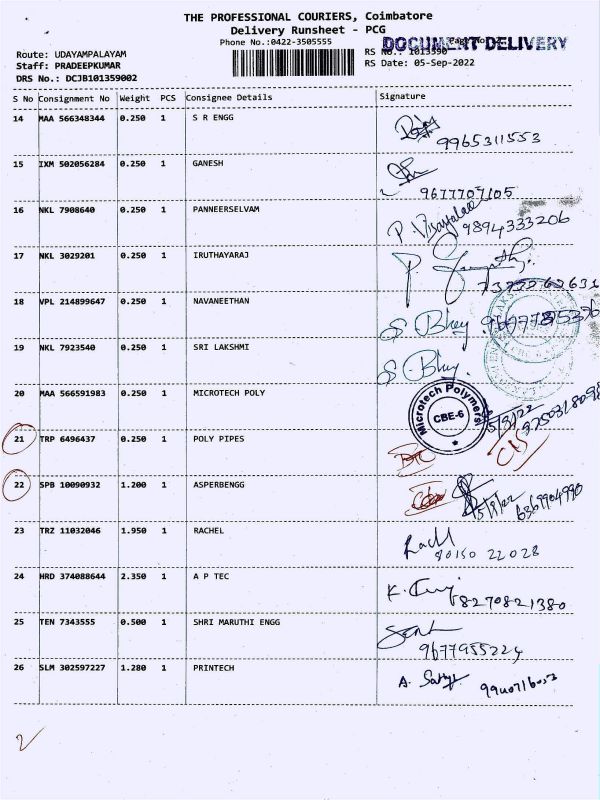 THE PROFESSIONAL COURIERS, Coimbatore
Delivery Runsheet - PCG
Phone No.:0422-3505555
DOCUMENT DELIVERY
Route: UDAYAMPALAYAM
RS No.: 1013590
Staff: PRADEEPKUMAR
RS Date: 05-Sep-2022
DRS No.: DCJB101359002
S No Consignment No Weight PCS Consignee Details Signature
14 MAA 566348344 0.250 1 S R ENGG
9965311553
15 IXM 502056284 0.250 1 GANESH
9677707105
16 NKL 7908640 0.250 1 PANNEERSELVAM
9894333206
17 NKL 3029201 0.250 1 IRUTHAYARAJ
18 VPL 214899647 0.250 1 NAVANEETHAN
19 NKL 7923540 0.250 1 SRI LAKSHMI
20 MAA 566591983 0.250 1 MICROTECH POLY
Microtech Polymers
CBE-6
21 TRP 6496437 0.250 1 POLY PIPES
22 SPB 10090932 1.200 1 ASPERBENGG
6369904990
23 TRZ 11032046 1.950 1 RACHEL
80150 22028
24 HRD 374088644 2.350 1 A P TEC
8270821380
25 TEN 7343555 0.500 1 SHRI MARUTHI ENGG
9677955224
26 SLM 302597227 1.280 1 PRINTECH
2